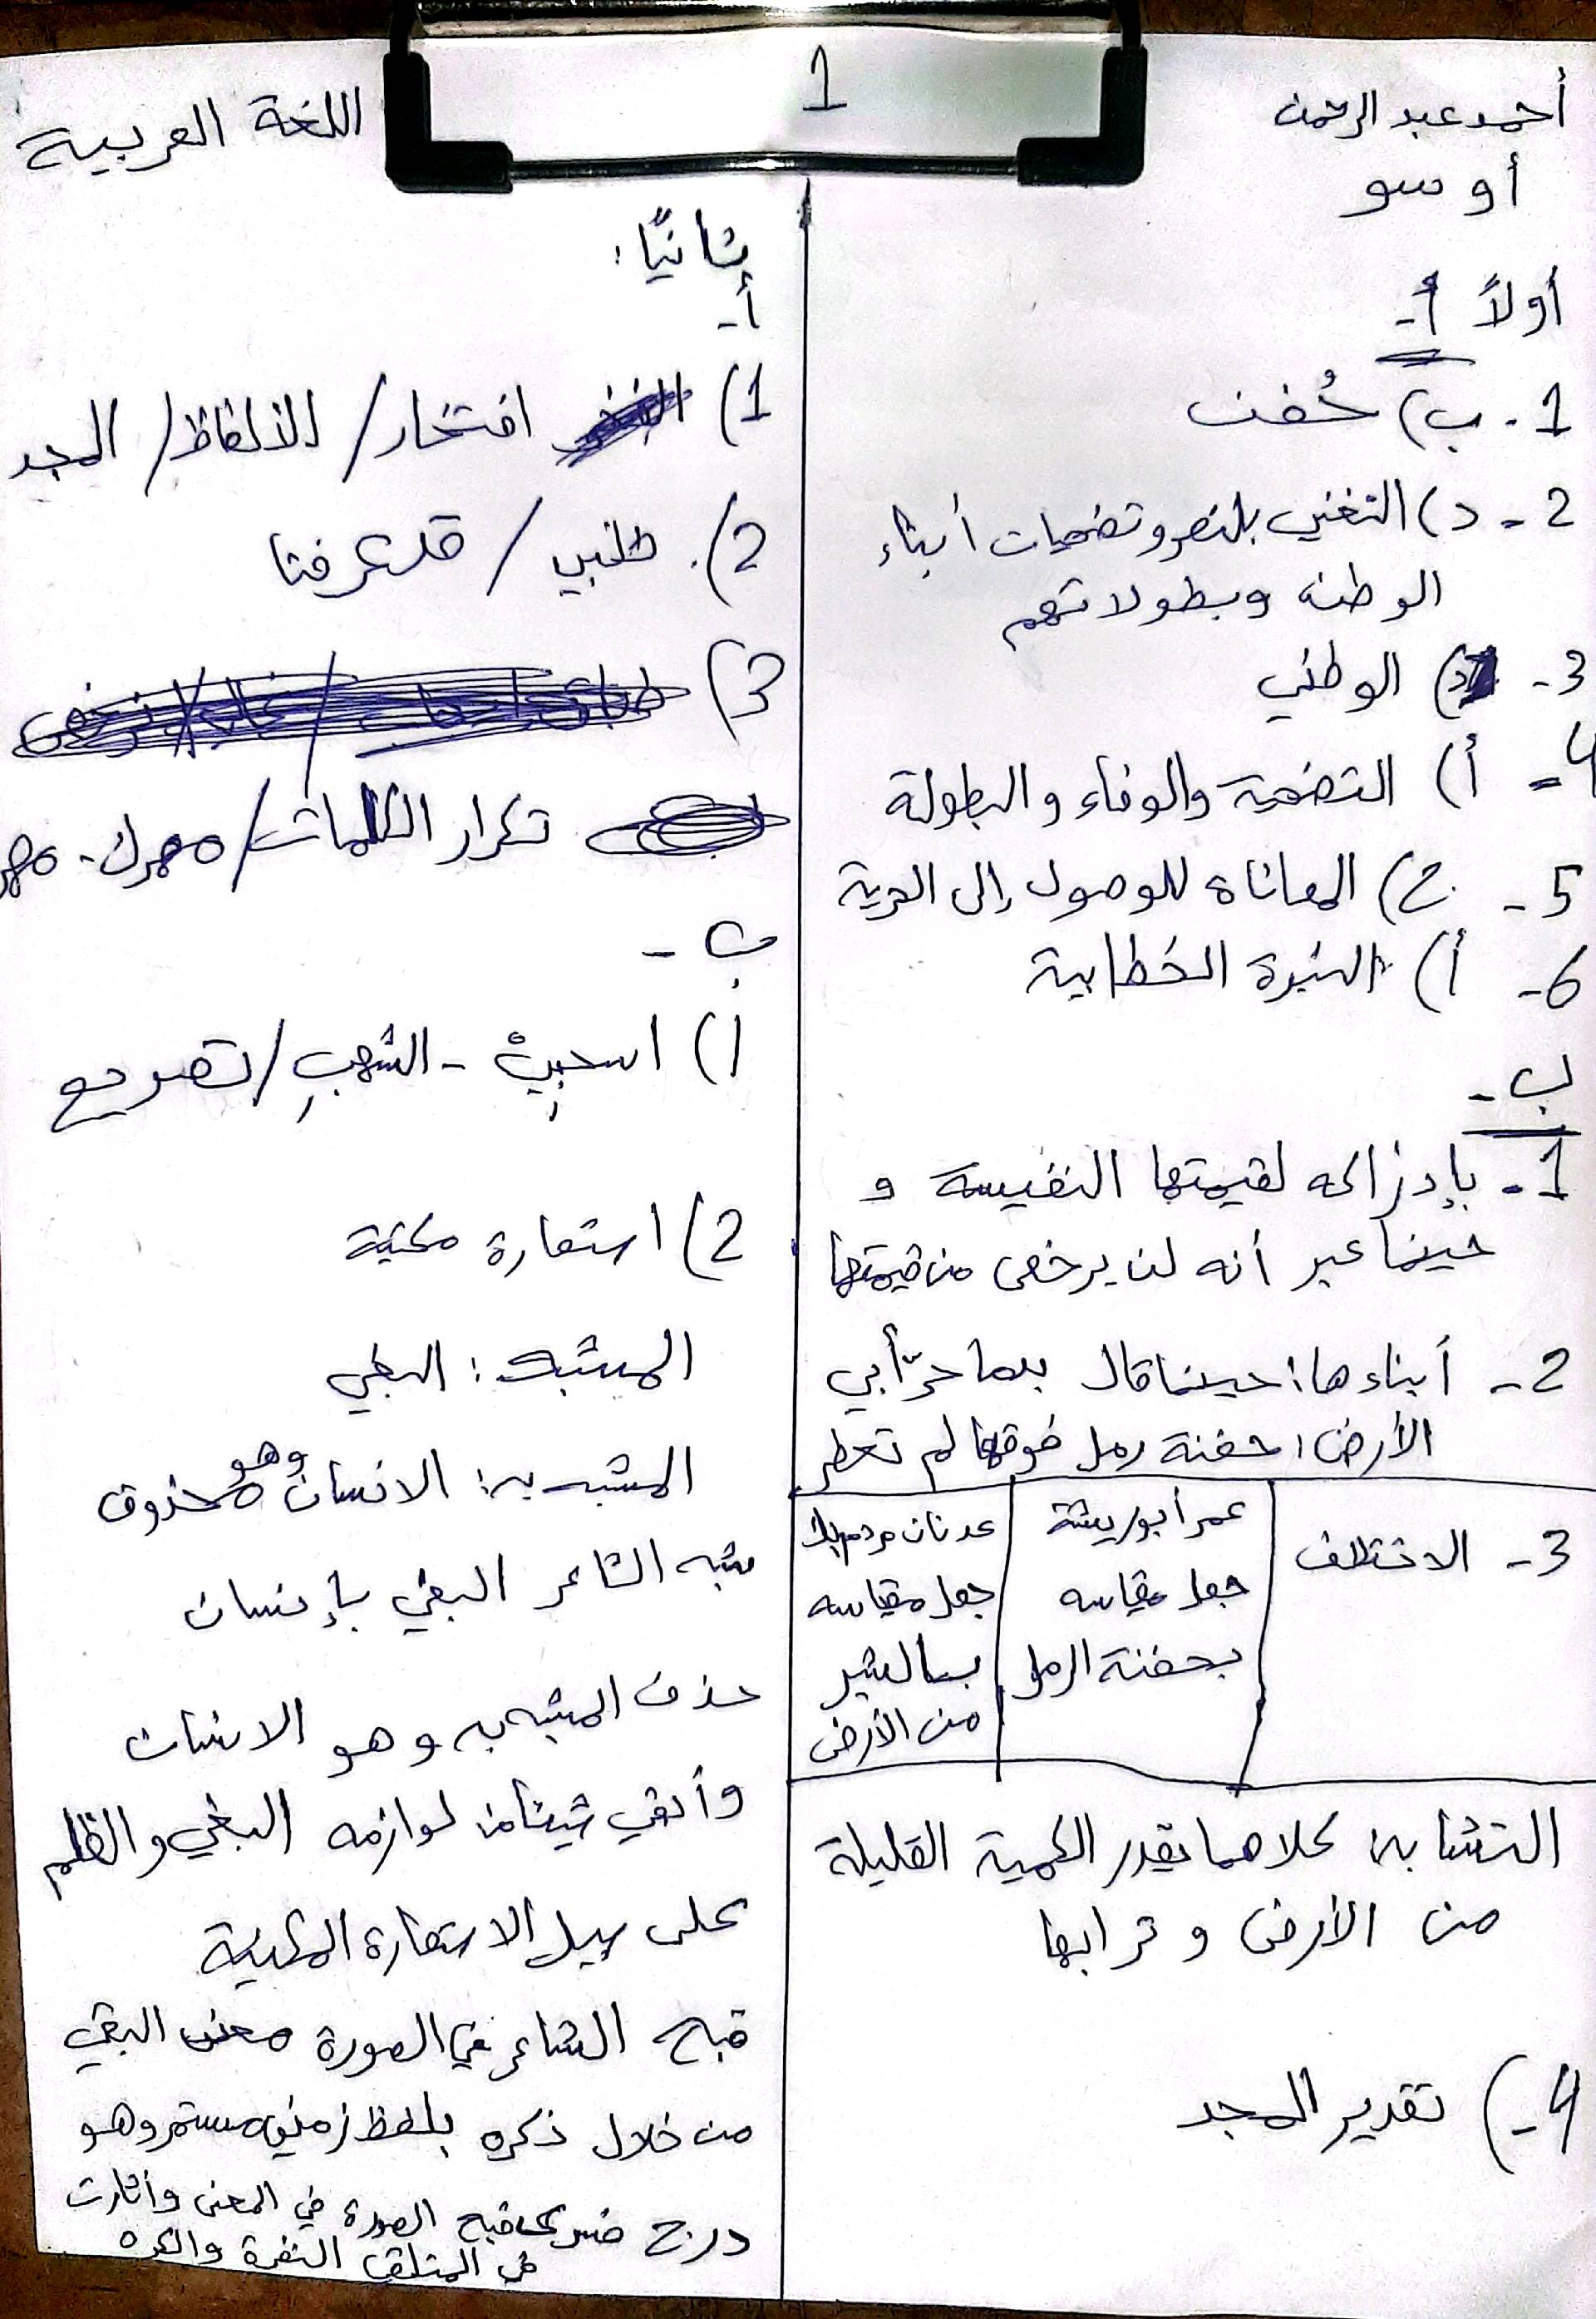 1
أحمد عبد الرحمن
أوسو
اللغة العربية
أولاً أ-
1- ب) حُفن
2- د) التغني بالنصر وتضحيات أبناء
الوطن وبطولاتهم
3- د) الوطني
4- أ) التضحية والوفاء والبطولة
5- ج) المعاناة للوصول إلى الحرية
6- أ) النبرة الخطابية
ب-
1- بإدراكه لقيمتها النفيسة و
حينما عبر أنه لن يرخص من قيمتها
2- أبناءها: حينما قال بدما حرّ أبي
الأرض: حفنة رمل فوقها لم تعطر
3- الاختلاف
عمر أبو ريشة
جعل مقياسه
بحفنة الرمل
عدنان مردم بك
جعل مقياسه
بالشبر
من الأرض
التشابه: كلاهما يقدر الكمية القليلة
من الأرض وترابها
4-) تقدير المجد
ثانيًا:
أ-
1) افتخار / الألفاظ / المجد
2). طلبي / قد عرفنا
3)
تكرار الكلمات / مهرك - مهر
ب-
1) اسحبي - الشهبِ / تصريع
2) استعارة مكنية
المشبه: البغي
المشبه به: الانسان وهو محذوف
شبه الشاعر البغي بإنسان
حذف المشبه به وهو الانسان
وأبقي شيئا من لوازمه البغي والظلم
على سبيل الاستعارة المكنية
قبح الشاعر في الصورة معنى البغي
من خلال ذكره بلفظ زمني مستمر وهو
درج قبح الصورة في المعنى وأثارت
في المتلقي النفرة والكره